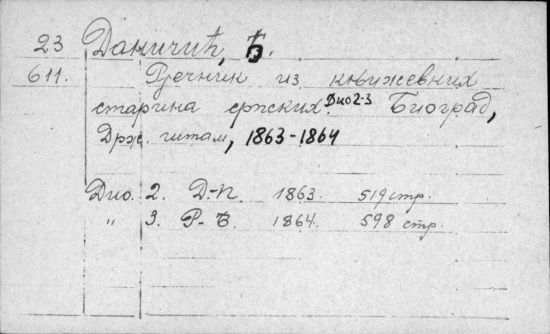 23 Даничић, Ђ.
611. Рјечник из књижевних
старина српских. Дио 2-3 Биоград,
Држ. штам, 1863-1864
Дио. 2. Д-П. 1863. 519 стр.
„ 3. Р-Ћ 1864. 598 стр.